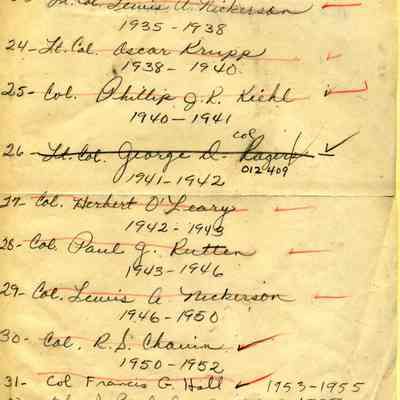 Lt. Col. Lewis A. Nickerson
1935-1938
24- Lt. Col. Oscar Krupp
1938-1940.
25- Col. Phillip J.R. Kiehl
1940-1941
col
26- Lt. Col. George D. Rogers
012409
1941-1942
27- Col. Herbert O'Leary
1942-1943
28- Col. Paul J. Rutten
1943-1946
29- Col. Lewis A Nickerson
1946-1950
30- Col. R.S. Chavin
1950-1952
31- Col Francis G Hall 1953-1955